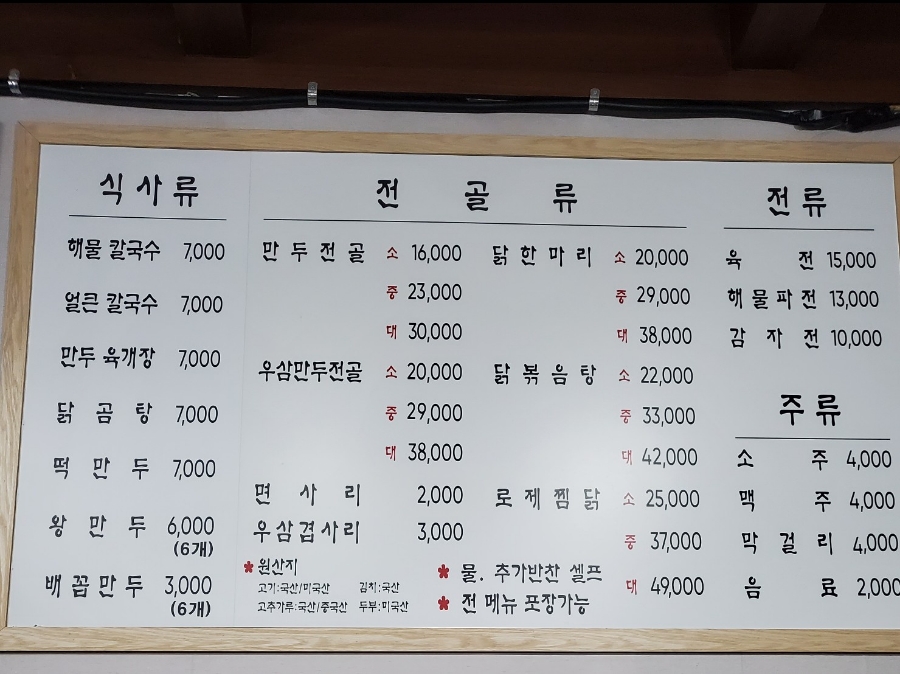 식사류
해물 칼국수 7,000
얼큰 칼국수 7,000
만두 육개장 7,000
닭 곰 탕 7,000
떡 만 두 7,000
왕 만 두 6,000
(6개)
배 꼽 만 두 3,000
(6개)
전 골 류
만 두 전 골 소 16,000
중 23,000
대 30,000
우삼만두전골 소 20,000
중 29,000
대 38,000
면 사 리 2,000
우삼겹사리 3,000
* 원산지
고기:국산/미국산 김치:국산
고추가루:국산/중국산 두부:미국산
닭 한 마 리 소 20,000
중 29,000
대 38,000
닭 볶 음 탕 소 22,000
중 33,000
대 42,000
로 제 찜 닭 소 25,000
중 37,000
대 49,000
* 물. 추가반찬 셀프
* 전 메뉴 포장가능
전류
육 전 15,000
해 물 파 전 13,000
감 자 전 10,000
주류
소 주 4,000
맥 주 4,000
막 걸 리 4,000
음 료 2,000